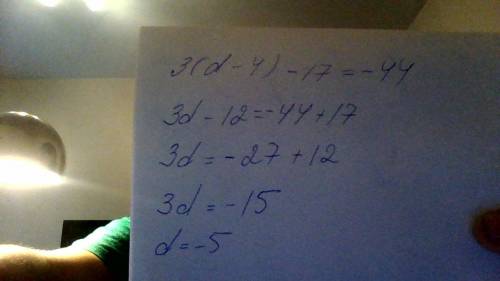 3(d-4)-17=-44
3d-12=-44+17
3d=-27+12
3d=-15
d=-5